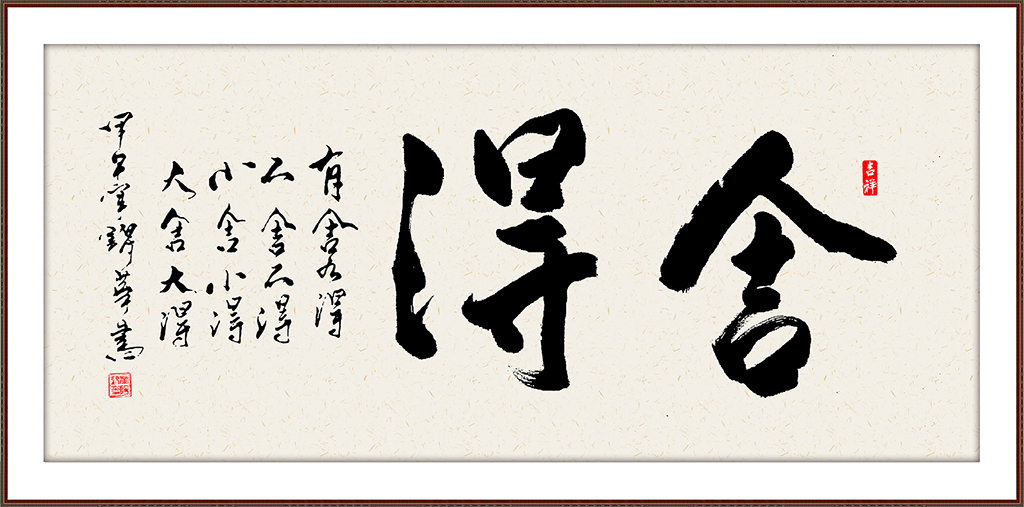 吉祥
舍得
有舍有得
不舍不得
小舍小得
大舍大得
甲午華書